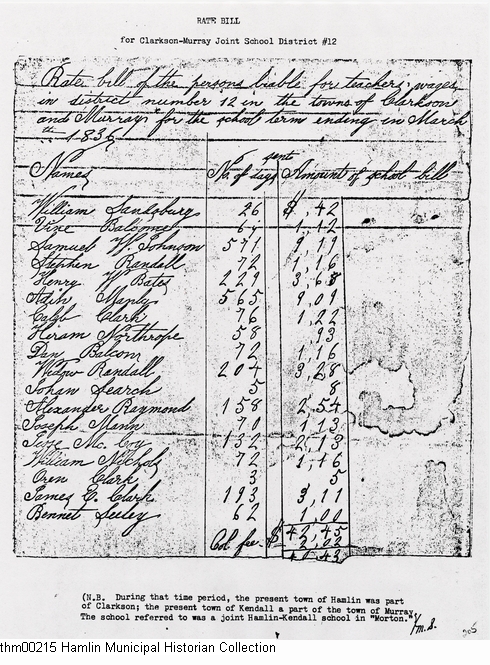 RATE BILL
for Clarkson-Murray Joint School District #12
Rate bill of the persons liable for teachers wages
in district number 12 in the towns of Clarkson
and Murray for the school term ending in March
th 1836
sent
Names No. of days Amount of school bill
William Sandsburg 26 $ .42
Vine Balcome 1,12
Samuel W. Johnson 571 9,19
Stephen Randall 72 1,16
Henry W Bates 229 3,68
Maply 565 9,09
Caleb Clark 76 1,22
Hiram Northrope 58 93
Dan Balcom 72 1,16
Widow Randall 204 3,28
Search 5 8
Alexander Raymond 158 2,54
Joseph Mann 70 1,13
Mc. Coy 132 2,13
William Nichols 72 1,46
Oren Clark 3 5
James E. Clark 193 3,11
Bennet Seeley 62 1,00
$ 42,45
Col fee
(N.B. During that time period, the present town of Hamlin was part
of Clarkson; the present town of Kendall a part of the town of Murray
The school referred to was a joint Hamlin-Kendall school in "Morton."
thm00215 Hamlin Municipal Historian Collection